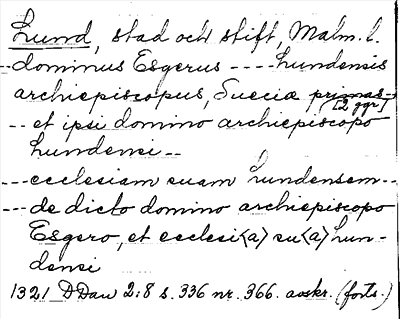 Lund, stad och stift, Malm. l.
--dominus Esgerus ---- Lundensis
archiepiscopus, Sueciæ primas--
[2 ggr]
-- et ipsi domino archiepiscopo
Lundensi --
--- ecclesiam suam Lundensem --
--- de dicto domino archiepiscopo
Esgero, et ecclesi<a> su<a> Lun-
densi
1321 DDan 2:8 s. 336 nr. 366. avskr. (forts.)